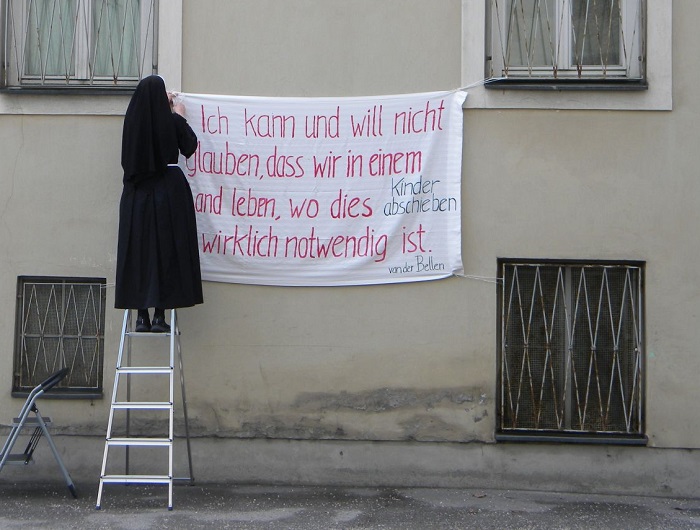 Ich kann und will nicht
glauben, dass wir in einem
and leben, wo dies Kinder
abschieben
wirklich notwendig ist.
van der Bellen